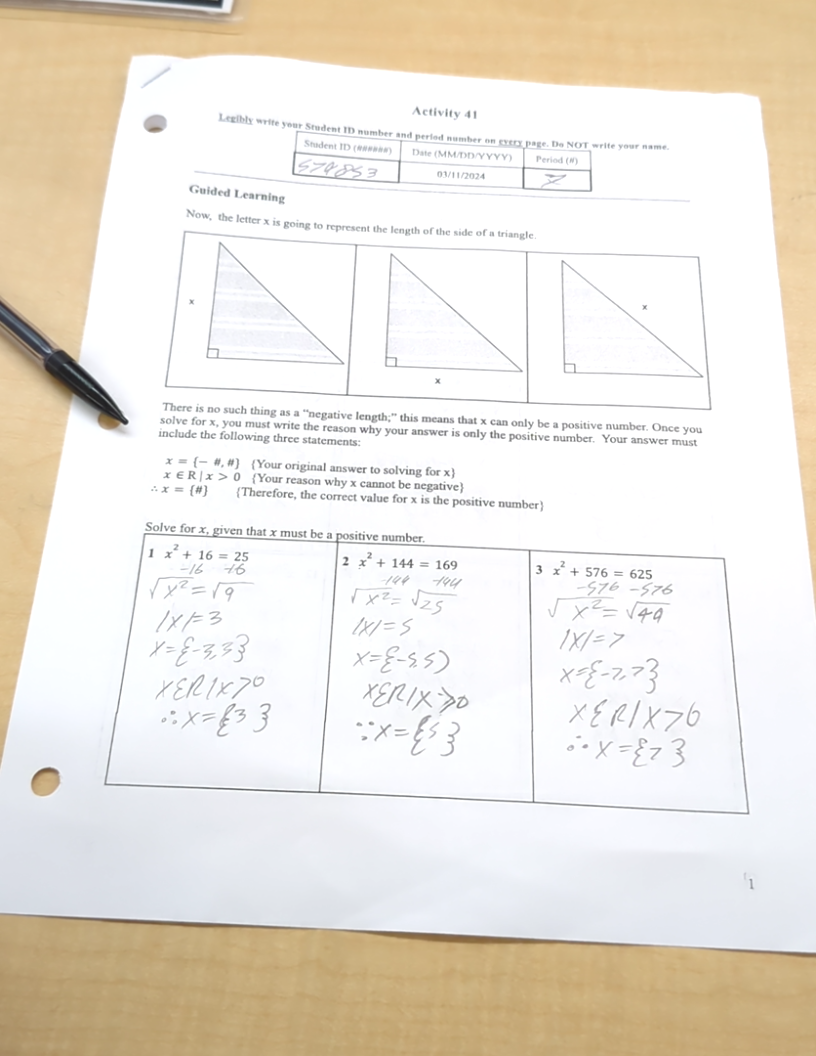 Activity 41
Legibly write your Student ID number and period number on every page. Do NOT write your name.
Student ID (######) Date (MM/DD/YYYY) Period (#)
574853 03/11/2024 7
Guided Learning
Now, the letter x is going to represent the length of the side of a triangle.
x
x
x
There is no such thing as a "negative length;" this means that x can only be a positive number. Once you
solve for x, you must write the reason why your answer is only the positive number. Your answer must
include the following three statements:
x = {− #, #} {Your original answer to solving for x}
x ∈ R | x > 0 {Your reason why x cannot be negative}
∴ x = {#} {Therefore, the correct value for x is the positive number}
Solve for x, given that x must be a positive number.
1 x² + 16 = 25
-16 -16
√x² = √9
|x| = 3
x = {-3, 3}
x ∈ R | x > 0
∴ x = {3}
2 x² + 144 = 169
-144 -144
√x² = √25
|x| = 5
x = {-5, 5}
x ∈ R | x > 0
∴ x = {5}
3 x² + 576 = 625
-576 -576
√x² = √49
|x| = 7
x = {-7, 7}
x ∈ R | x > 0
∴ x = {7}
1